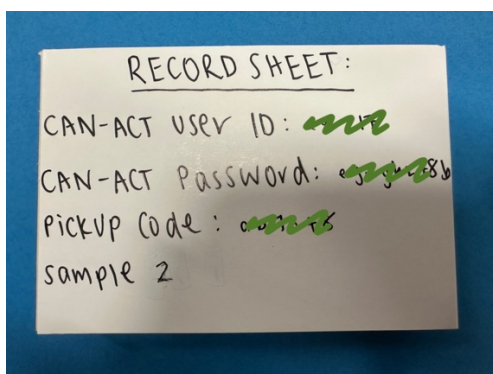 RECORD SHEET:
CAN-ACT USer ID:
CAN-ACT Password:
PickUp Code:
sample 2